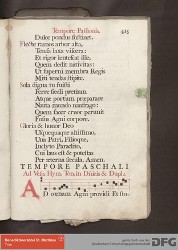 Tempore Passionis. 425
Dulce pondus sustinet.
Flecte ramos arbor alta,
Tensa laxa viscera:
Et rigor lentescat ille,
Quem dedit nativitas:
Ut superni membra Regis
Miti tendas stipite.
Sola digna tu fuisti
Ferre sæcli pretium,
Atque portum præparare
Nauta mundo naufrago:
Quem sacer cruor perunxit
Fusus Agni corpore.
Gloria & honor Deo
Usquequaque altissimo,
Una Patri, Filioque,
Inclyto Paraclito,
Cui laus est & potestas
Per æterna secula. Amen.
TEMPORE PASCHALI
Ad Vesp. Hym. Ton. in Dñicis & Dupl.
AD cœnam Agni providi Et sto-
Benediktinerabtei St. Matthias
Trier
DFG